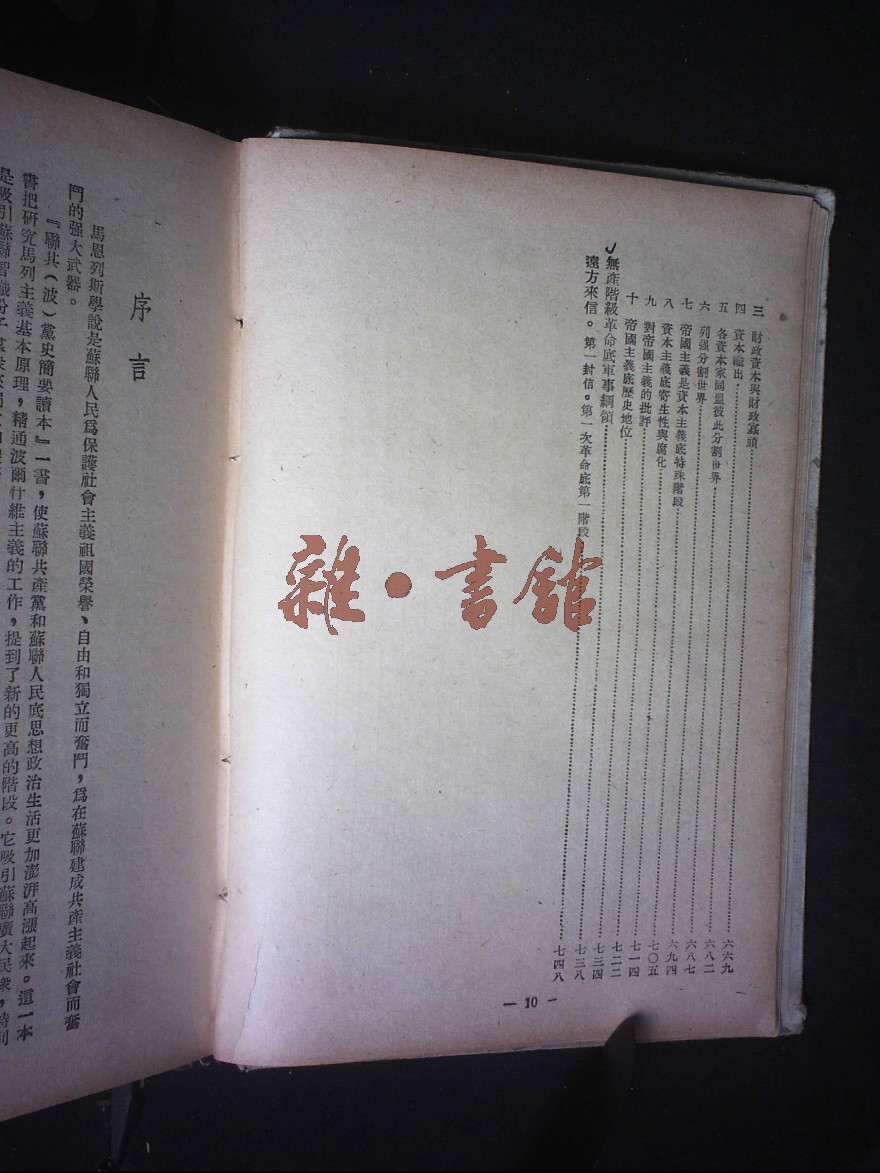 三 財政資本與財政寡頭……六六九
四 資本輸出……六八二
五 各資本家同盟彼此分割世界……六八七
六 列强分割世界……六九四
七 帝國主義是資本主義底特殊階段……七〇五
八 資本主義底寄生性與腐化……七一四
九 對帝國主義的批評……七二二
十 帝國主義底歷史地位……七三四
無產階級革命底軍事綱領……七三八
遠方來信。第一封信。第一次革命底第一階段……七四八
— 10 —
雜·書館
序言
馬恩列斯學說是蘇聯人民爲保護社會主義祖國榮譽、自由和獨立而奮鬥,爲在蘇聯建成共產主義社會而奮
鬥的强大武器。
『聯共(波)黨史簡要讀本』一書,使蘇聯共產黨和蘇聯人民底思想政治生活更加澎湃高漲起來。這一本
書把研究馬列主義基本原理,精通波爾什維主義的工作,提到了新的更高的階段。它吸引蘇聯廣大民衆,特別
是吸引蘇聯智識份子